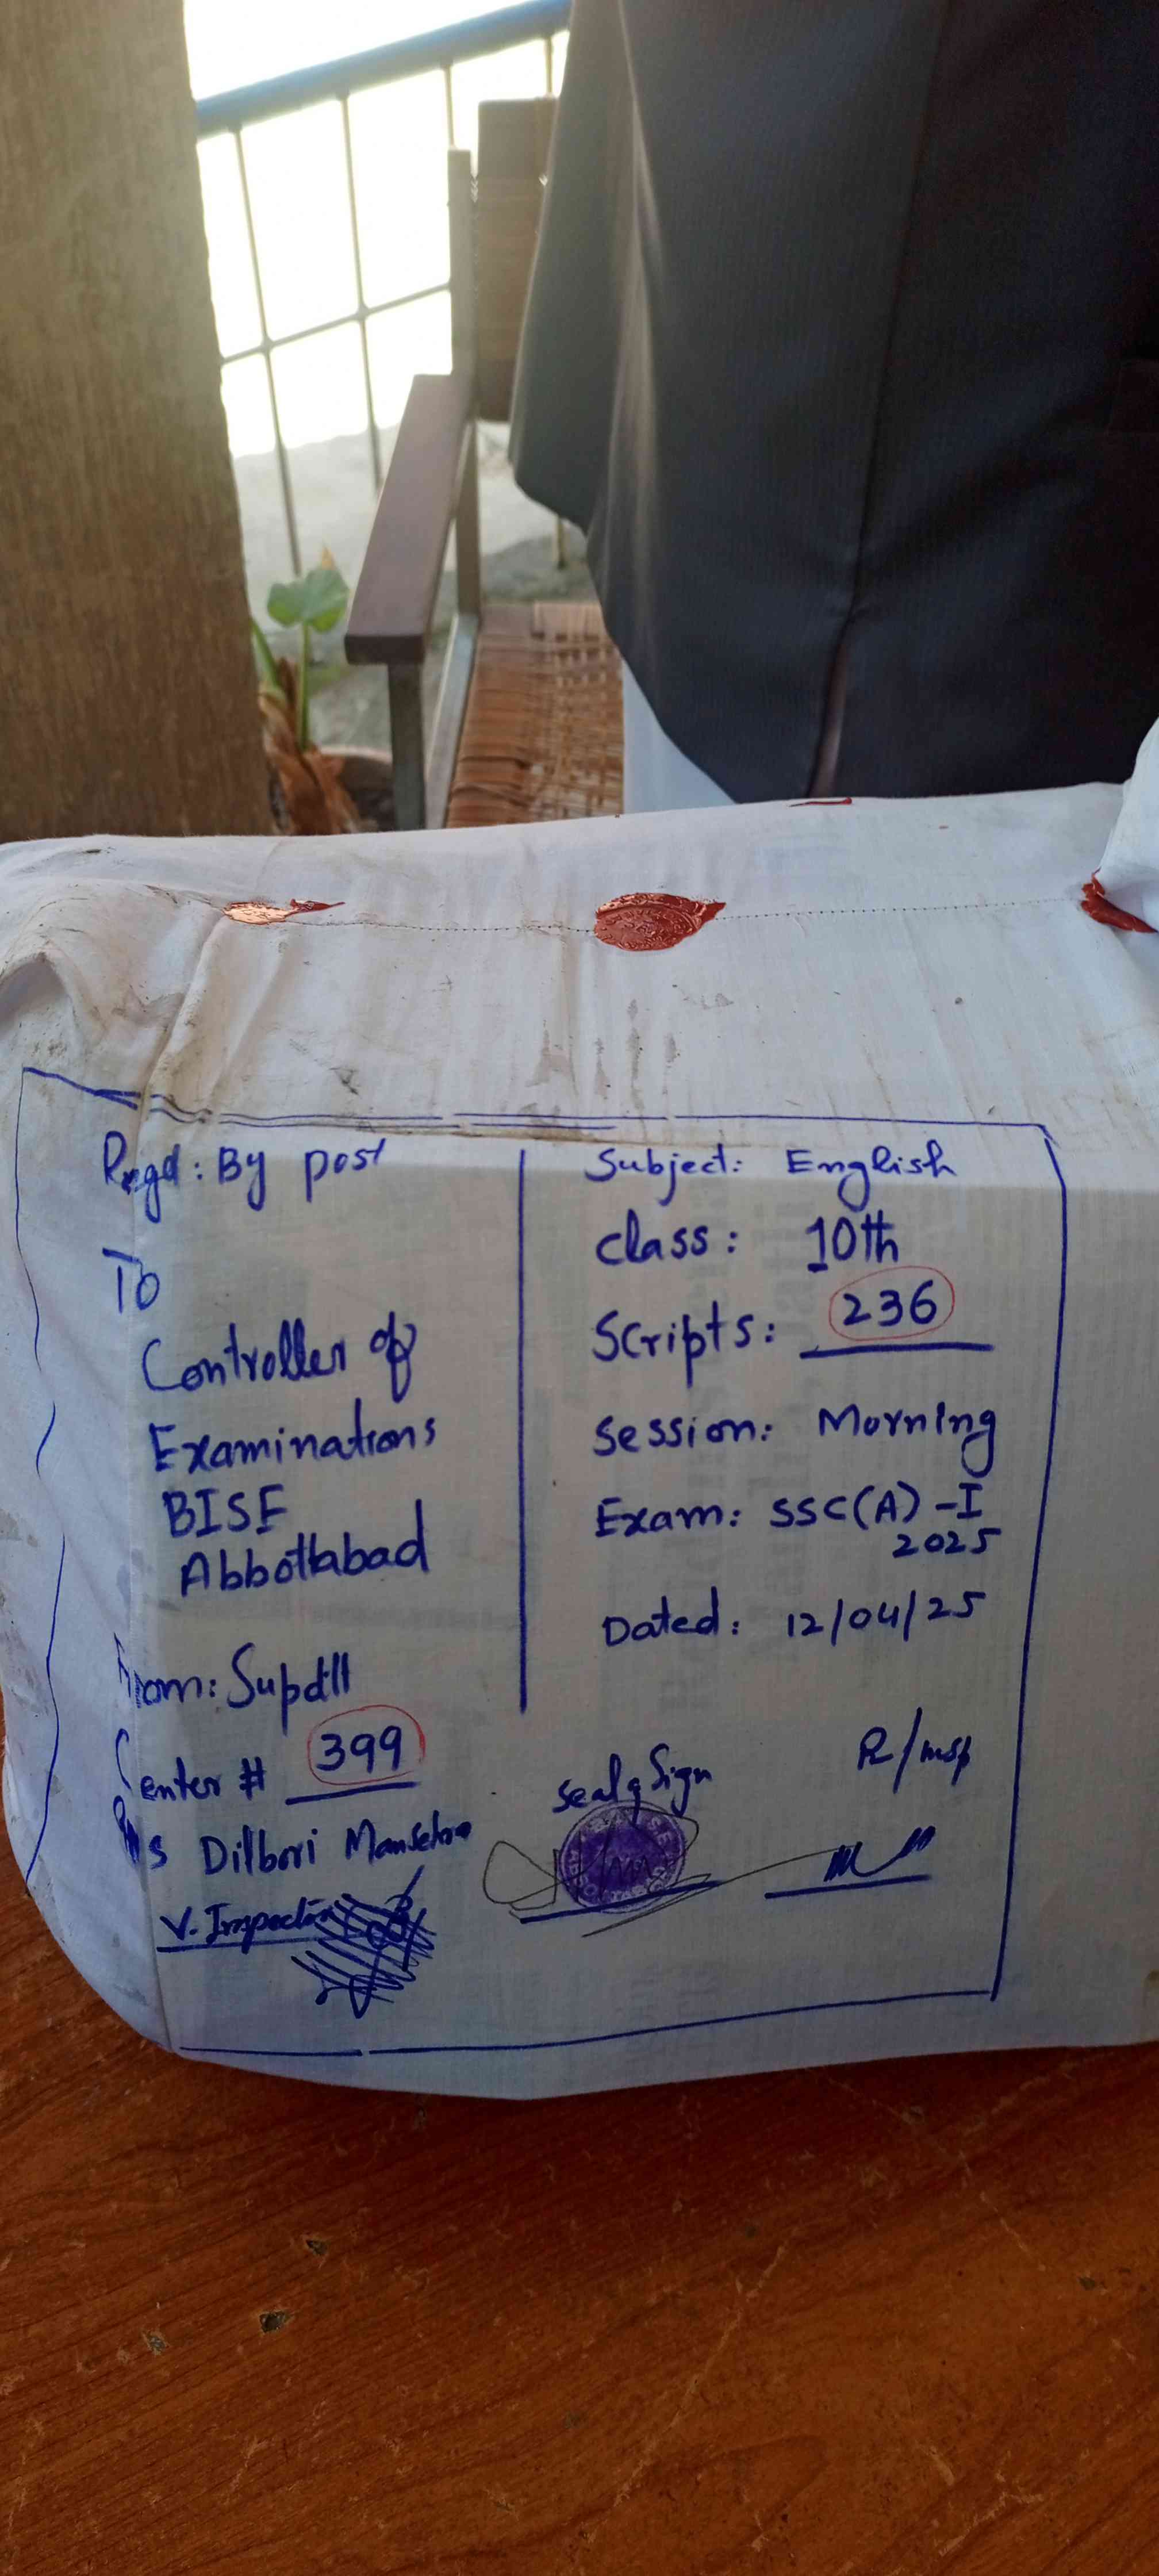 Regd: By post
To
Controller of
Examinations
BISE
Abbottabad
From: Supdtt
Center # 399
s Dilbori Mansehra
V. Inspector
Subject: English
class: 10th
Scripts: 236
Session: Morning
Exam: SSC(A)-I
2025
Dated: 12/04/25
Seal & Sign
R/Insp